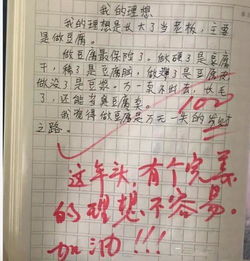 我的理想
我的理想是长大了当老板,主要
是做豆腐。
做豆腐最保险了。做硬了是豆腐
干,稀了是豆腐脑,做薄了是豆腐皮,
做没了是豆浆。万一卖不出去,放毛
了,还能当臭豆腐卖。
我觉得做豆腐是万无一失的发财
之路。
100
这年头,有个完美
的理想不容易.
加油!!!